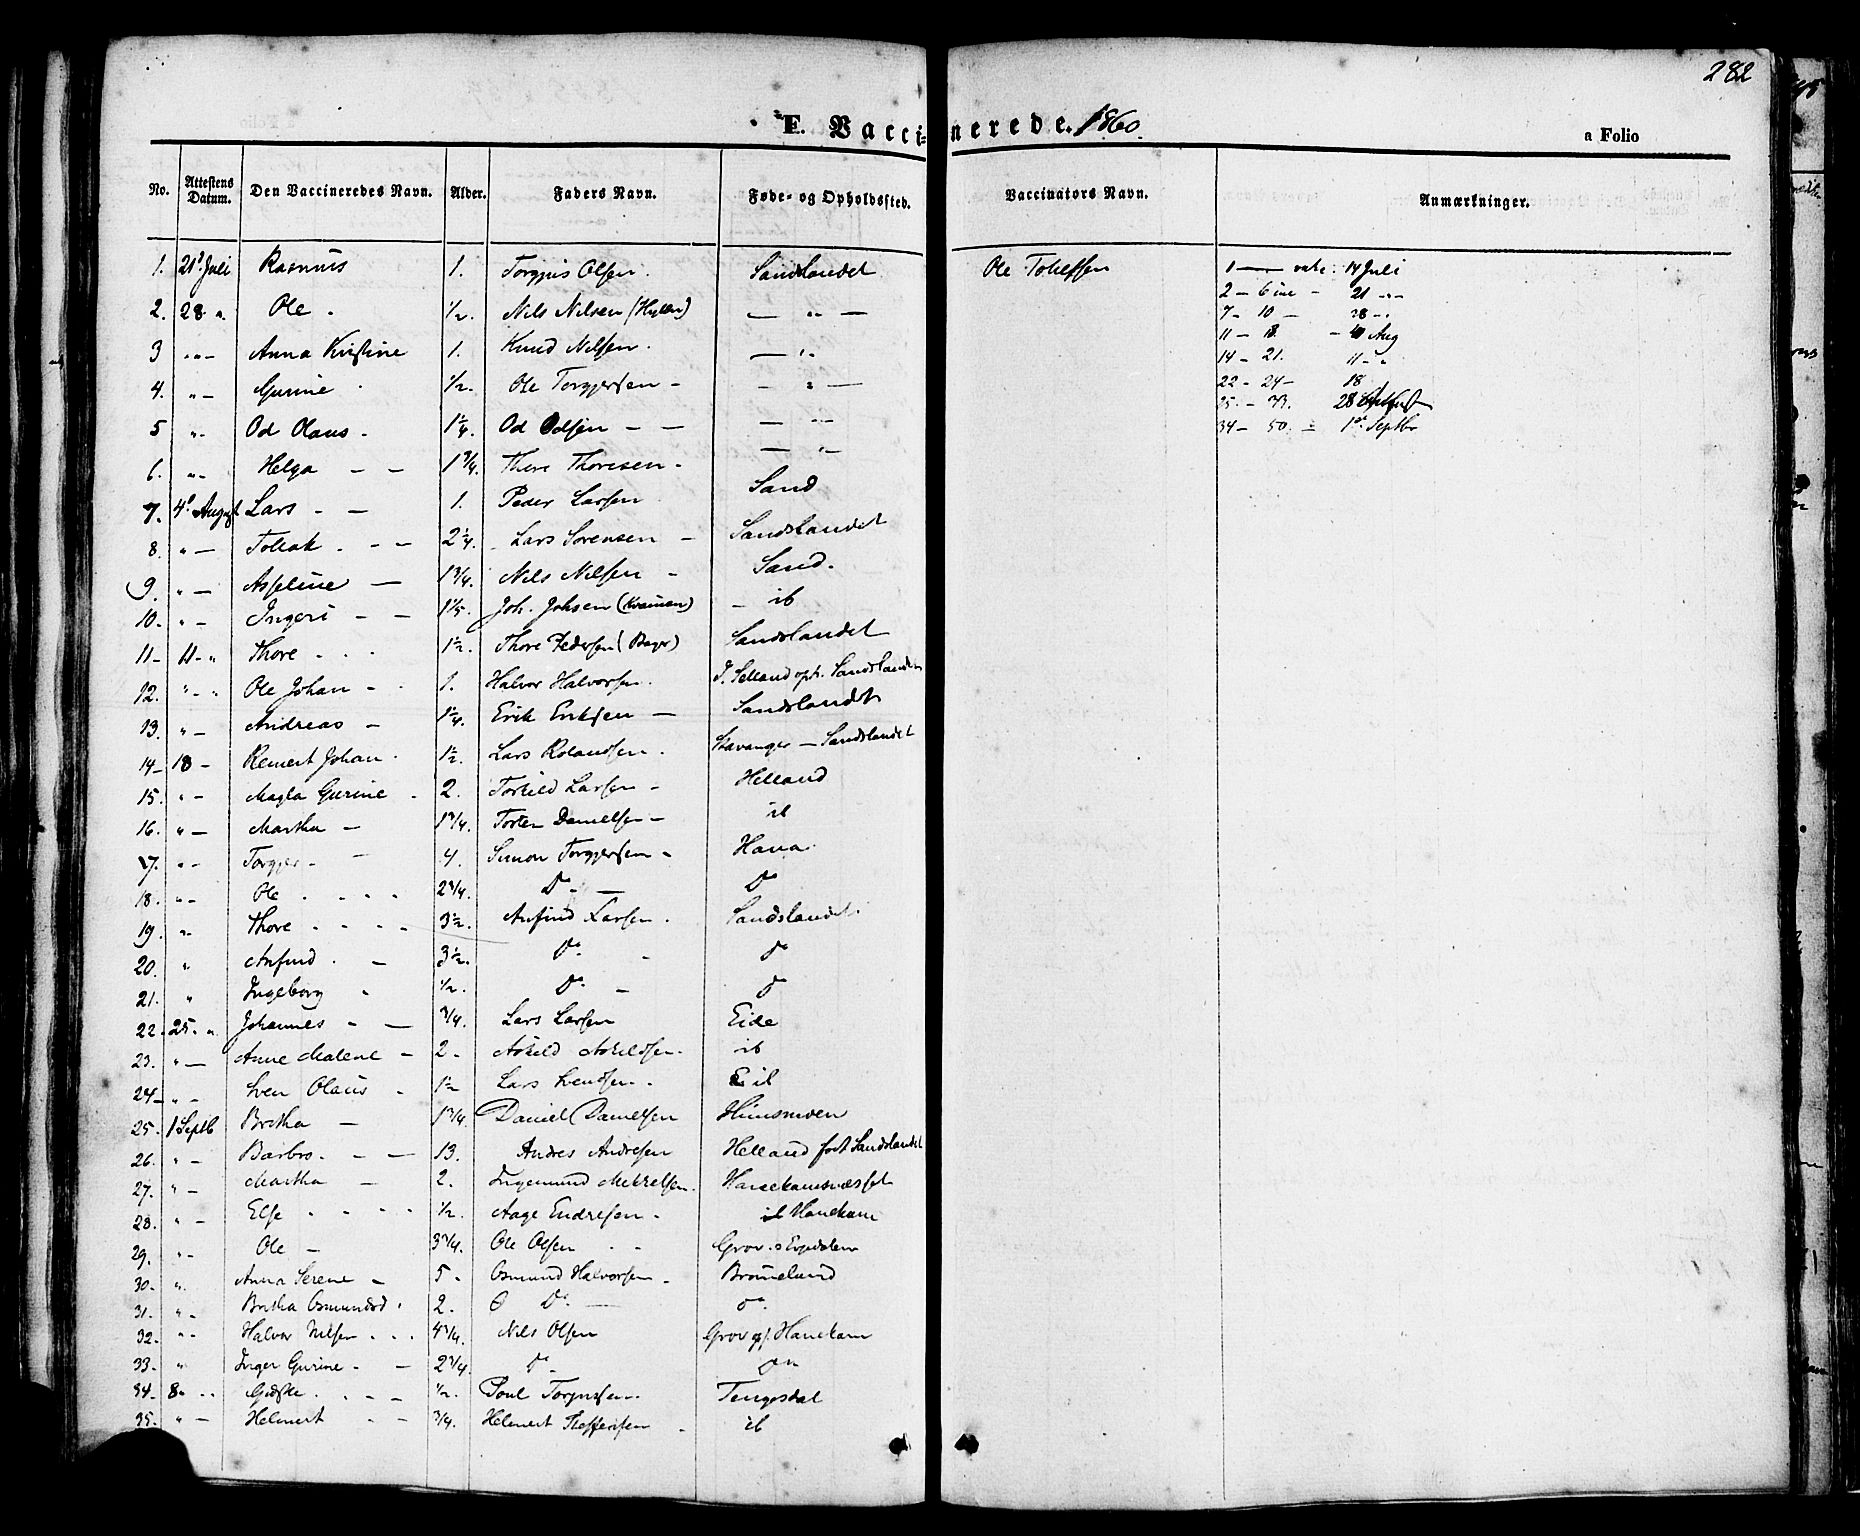 282
F. Vaccinerede. 1860.
a Folio
No. Attestens Datum. Den Vaccineredes Navn. Alder. Faders Navn. Føde- og Opholdssted. Vaccinators Navn. Anmærkninger.
1. 21d Juli Rasmus 1. Torgjus Olsen. Sandslandet Ole
2. 28 " Ole. 1/2. Nils Nilsen — " —
3 " — Anna Kristine 1. Knud Nilsen. — " —
4. " — Gurine 1/2. Ole Torgjersen — — " —
5 " — Od Olaus — 1 1/4. Od Odsen — — — " —
6. " — Helga — — 1 3/4. Thore Thoresen — — " —
7. 4d August Lars — — 1. Peder Larsen Sand
8. " — Tollak — — 2 1/4. Lars Sørensen — Sandslandet
9. " — Asseline — 1 3/4. Nils Nilsen — Sand.
10. " — Ingeri — — 1 1/5. Joh. Johsen — ib
11 — 11 — " Thore . . . 1 1/2. Thore Pedersen Sandslandet
12. " — " Ole Johan — 1. Halvor Halvorsen. Sandslandet
13. " — Andreas — 1 1/4. Erik Eriksen — Sandslandet
14 — 18 — Reinert Johan. 1 1/2. Lars Rolandsen. Stavanger — Sandslandet
15. " — Magla Gurine — 2. Torkild Larsen — Helland
16. " — Martha — 1 3/4. Danielsen — ib
17. " — Torgjer — — 4. Simon Torgjersen — Hana
18. " — Ole . . . . 2 3/4. Do — Do
19. " Thore . . . . 3 1/2. Anfind Larsen. Sandslandet.
20. " Anfind . — 3 1/2. Do — do
21. " Ingeborg — 1/2. Do — do
22. 25. " Johannes — — 3/4. Lars Larsen Eide
23. " — Anne Malene — 2. Askild Askildsen. ib
24 — " — Sven Olaus — 1 1/2 Lars Svendsen. ib
25. 1 Septb Britha — 1 3/4. Daniel Danielsen
26. " — Barbro. — — 13. Andres Andresen Helland Sandslandet
27. " — Martha — 2. Ingemund
28. " — Else . . . . 1/2. Aage Endresen — Hanekam
29. " — Ole — 3 3/4. Ole Olsen — — Grov
30. " Anna Serene — 5. Osmund Halvorsen — Brommeland
31. " — Britha Osmundsd. 2. Do — do
32. " — Halvor Nilsen . . . 4 3/4. Nils Olsen Grov Hanekam
33. " Inger Gurine — — 2 3/4. do — do
34. 8 — " 1/2. Poul Tengesdal
35. " — Helmert — — 3/4. Helmert ib
1 — 14 Juli
2 — 6 — 21 "
7 — 10 — 28 "
11 — Aug
14 — 21. 11 — "
22 — 24 — 18
25 — 33. 28
34 — 50. — 1st Septbr